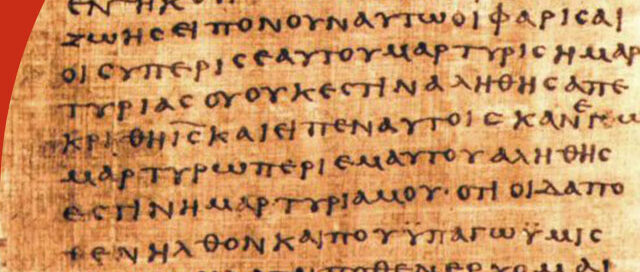 ΖΩΗϹΕΙΠΟΝΟΥΝΑΥΤΩΟΙΦΑΡΙϹΑΙ
ΟΙϹΥΠΕΡΙϹΕΑΥΤΟΥΜΑΡΤΥΡΙϹΗΜΑΡ
ΤΥΡΙΑϹΟΥΟΥΚΕϹΤΙΝΑΛΗΘΗϹΑΠΕ
ΚΡΙΘΗΙ̅Ϲ̅ΚΑΙΕΙΠΕΝΑΥΤΟΙϹΚΑΝΕΓΩ
ΜΑΡΤΥΡΩΠΕΡΙΕΜΑΥΤΟΥΑΛΗΘΗϹ
ΕϹΤΙΝΗΜΑΡΤΥΡΙΑΜΟΥ·ΟΤΙΟΙΔΑΠΟ
ΘΕΝΗΛΘΟΝΚΑΙΠΟΥΫΠΑΓΩΫΜΙϹ
ΠΟΘΕΝΕΡΧΟΜΑΙ